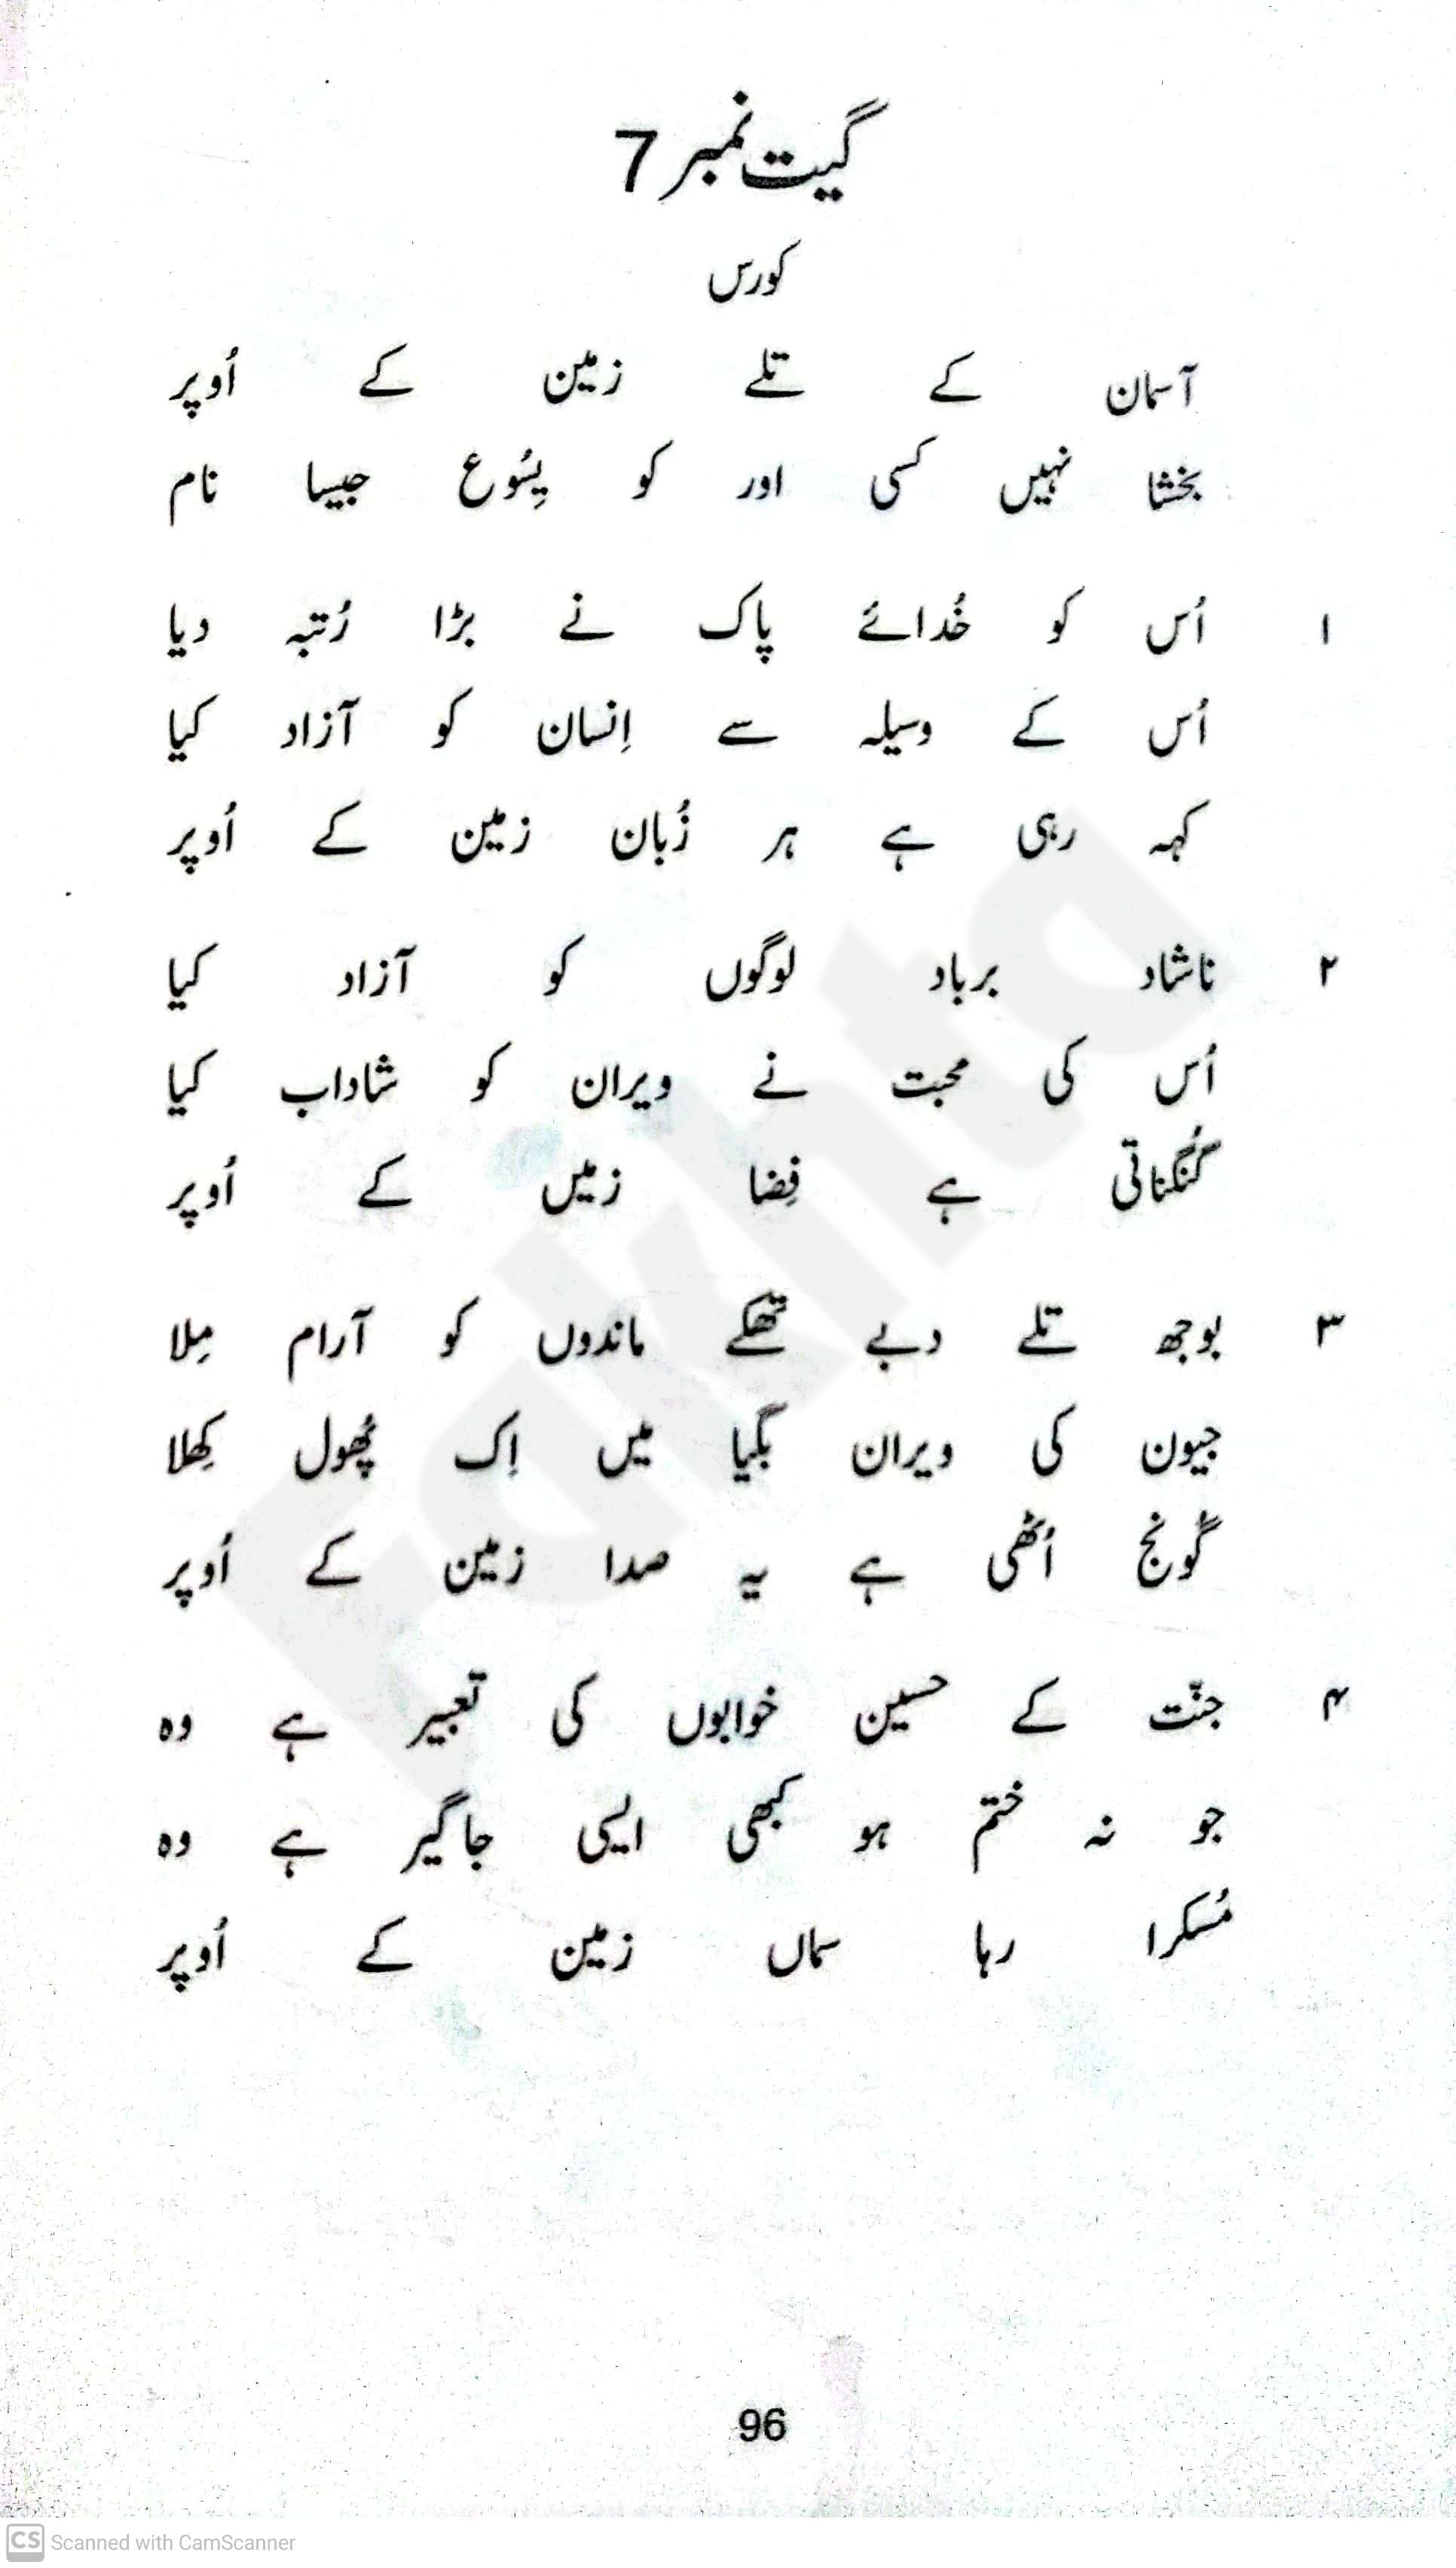 گیت نمبر 7
کورس
آسمان کے تلے زمین کے اُوپر
بخشا نہیں کسی اور کو یِسُوع جیسا نام
۱ اُس کو خُدائے پاک نے بڑا رُتبہ دیا
اُس کے وسیلہ سے اِنسان کو آزاد کیا
کہہ رہی ہے ہر زُبان زمین کے اُوپر
۲ ناشاد برباد لوگوں کو آزاد کیا
اُس کی محبت نے ویران کو شاداب کیا
گُنگناتی ہے فِضا زمیں کے اُوپر
۳ بوجھ تلے دبے تھکے ماندوں کو آرام مِلا
جیون کی ویران بگیا میں اِک پُھول کِھلا
گُونج اُٹھی ہے یہ صدا زمین کے اُوپر
۴ جنّت کے حسین خوابوں کی تعبیر ہے وہ
جو نہ ختم ہو کبھی ایسی جاگیر ہے وہ
مُسکرا رہا سماں زمین کے اُوپر
Fakhta
96
CS Scanned with CamScanner